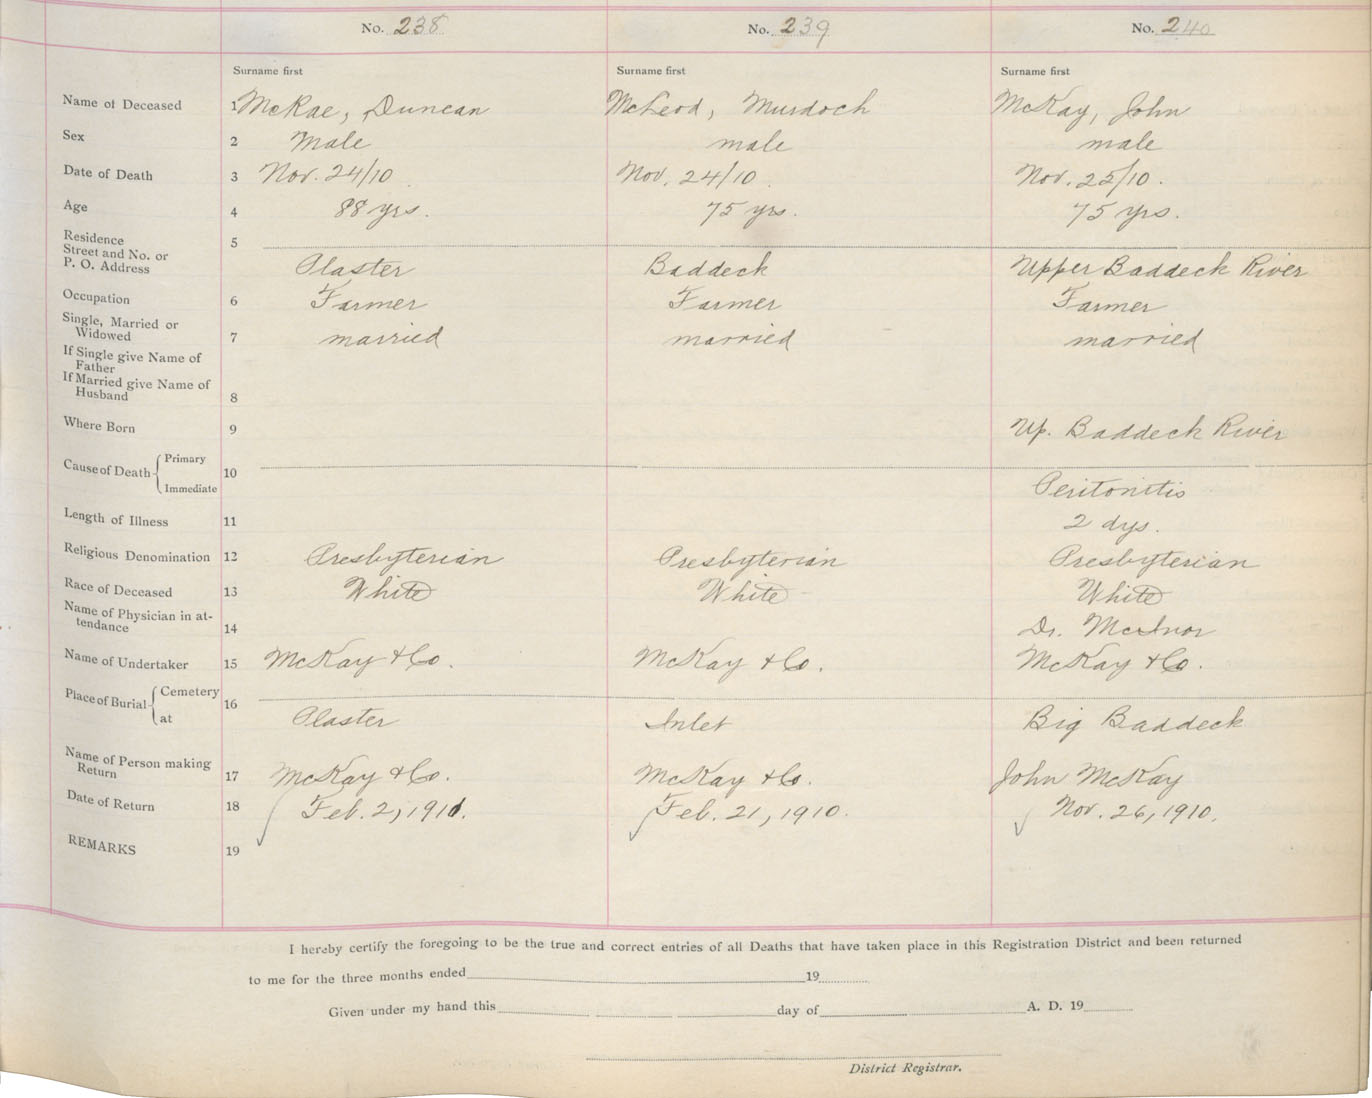 No. 238 No. 239 No. 240
Surname first Surname first Surname first
Name of Deceased 1 McRae, Duncan McLeod, Murdoch McKay, John
Sex 2 Male male male
Date of Death 3 Nov. 24/10 Nov. 24/10 Nov. 25/10.
Age 4 88 yrs. 75 yrs. 75 yrs.
Residence 5
Street and No. or
P. O. Address Plaster Baddeck Upper Baddeck River
Occupation 6 Farmer Farmer Farmer
Single, Married or
Widowed 7 married married married
If Single give Name of
Father
If Married give Name of
Husband 8
Where Born 9 Up. Baddeck River
Cause of Death { Primary
10
Immediate Peritonitis
Length of Illness 11 2 dys.
Religious Denomination 12 Presbyterian Presbyterian Presbyterian
Race of Deceased 13 White White White
Name of Physician in at-
tendance 14 Dr.
Name of Undertaker 15 McKay & Co. McKay & Co. McKay & Co.
Place of Burial { Cemetery
16
at Plaster Inlet Big Baddeck
Name of Person making
Return 17 McKay & Co. McKay & Co. John McKay
Date of Return 18 Feb. 21, 1910. Nov. 26, 1910.
REMARKS 19
I hereby certify the foregoing to be the true and correct entries of all Deaths that have taken place in this Registration District and been returned
to me for the three months ended 19
Given under my hand this day of A. D. 19
District Registrar.